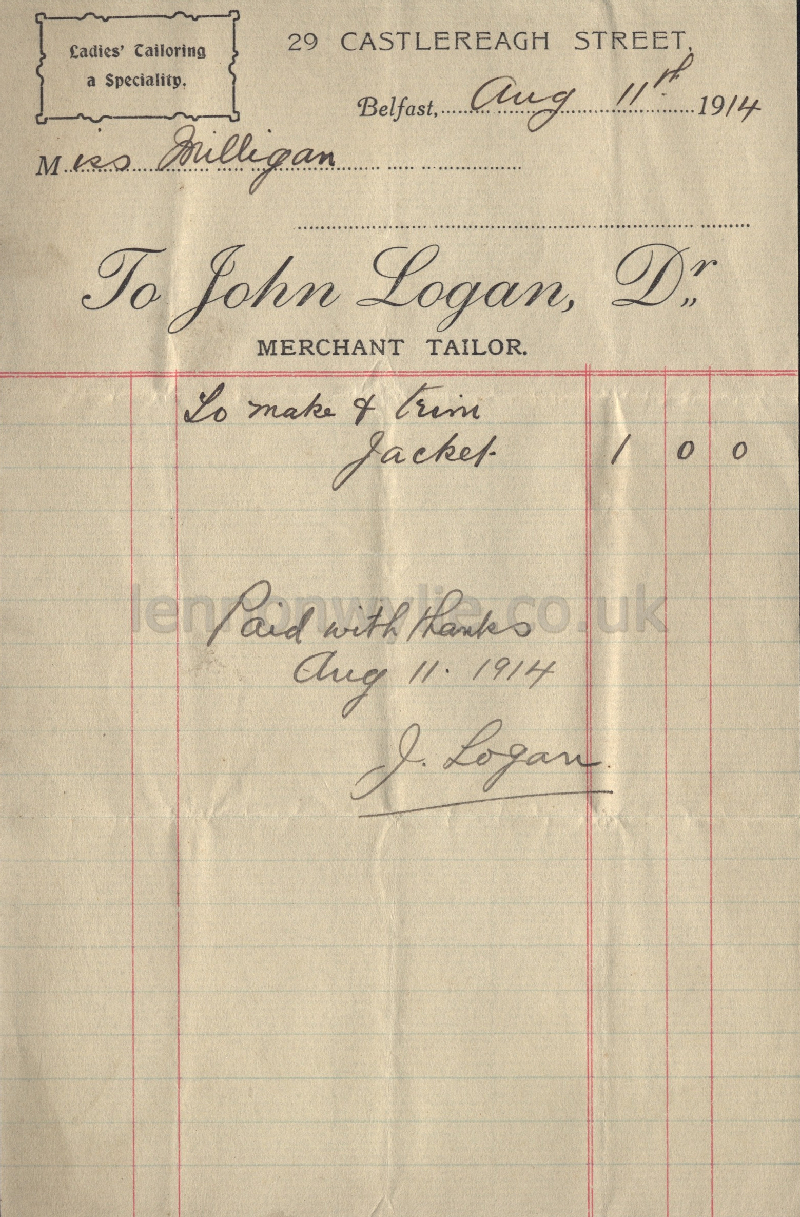 Ladies' Tailoring
a Speciality.
29 CASTLEREAGH STREET,
Belfast, Aug 11th 1914
Miss Milligan
To John Logan, Dr.
MERCHANT TAILOR.
To make & trim
Jacket 1 0 0
lennonwylie.co.uk
Paid with thanks
Aug 11. 1914
J. Logan.